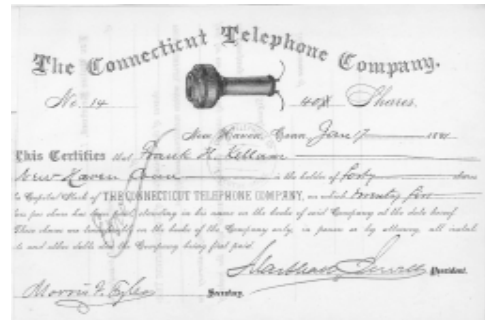 The Connecticut Telephone Company.
No. 14 40 Shares.
New Haven, Conn Jan 17 1881
This Certifies that Frank H. Kellam
New Haven Conn is the holder of forty shares
Capital Stock of THE CONNECTICUT TELEPHONE COMPANY, on which twenty five
per share has been paid, standing in his name on the books of said Company at the date hereof
These shares are transferable on the books of the Company only, in person or by attorney, all
and other debts due the Company being first paid.
President.
Morris F. Tyler Secretary.